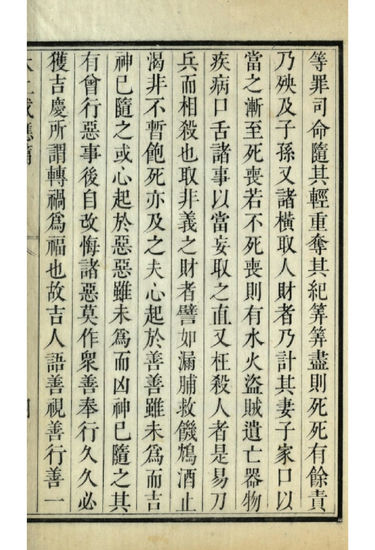 等罪司命隨其輕重奪其紀筭筭盡則死死有餘責
乃殃及子孫又諸橫取人財者乃計其妻子家口以
當之漸至死喪若不死喪則有水火盜賊遺亡器物
疾病口舌諸事以當妄取之直又枉殺人者是易刀
兵而相殺也取非義之財者譬如漏脯救饑鴆酒止
渴非不暫飽死亦及之夫心起於善善雖未爲而吉
神已隨之或心起於惡惡雖未爲而凶神已隨之其
有曾行惡事後自改悔諸惡莫作衆善奉行久久必
獲吉慶所謂轉禍爲福也故吉人語善視善行善一
太上感應篇